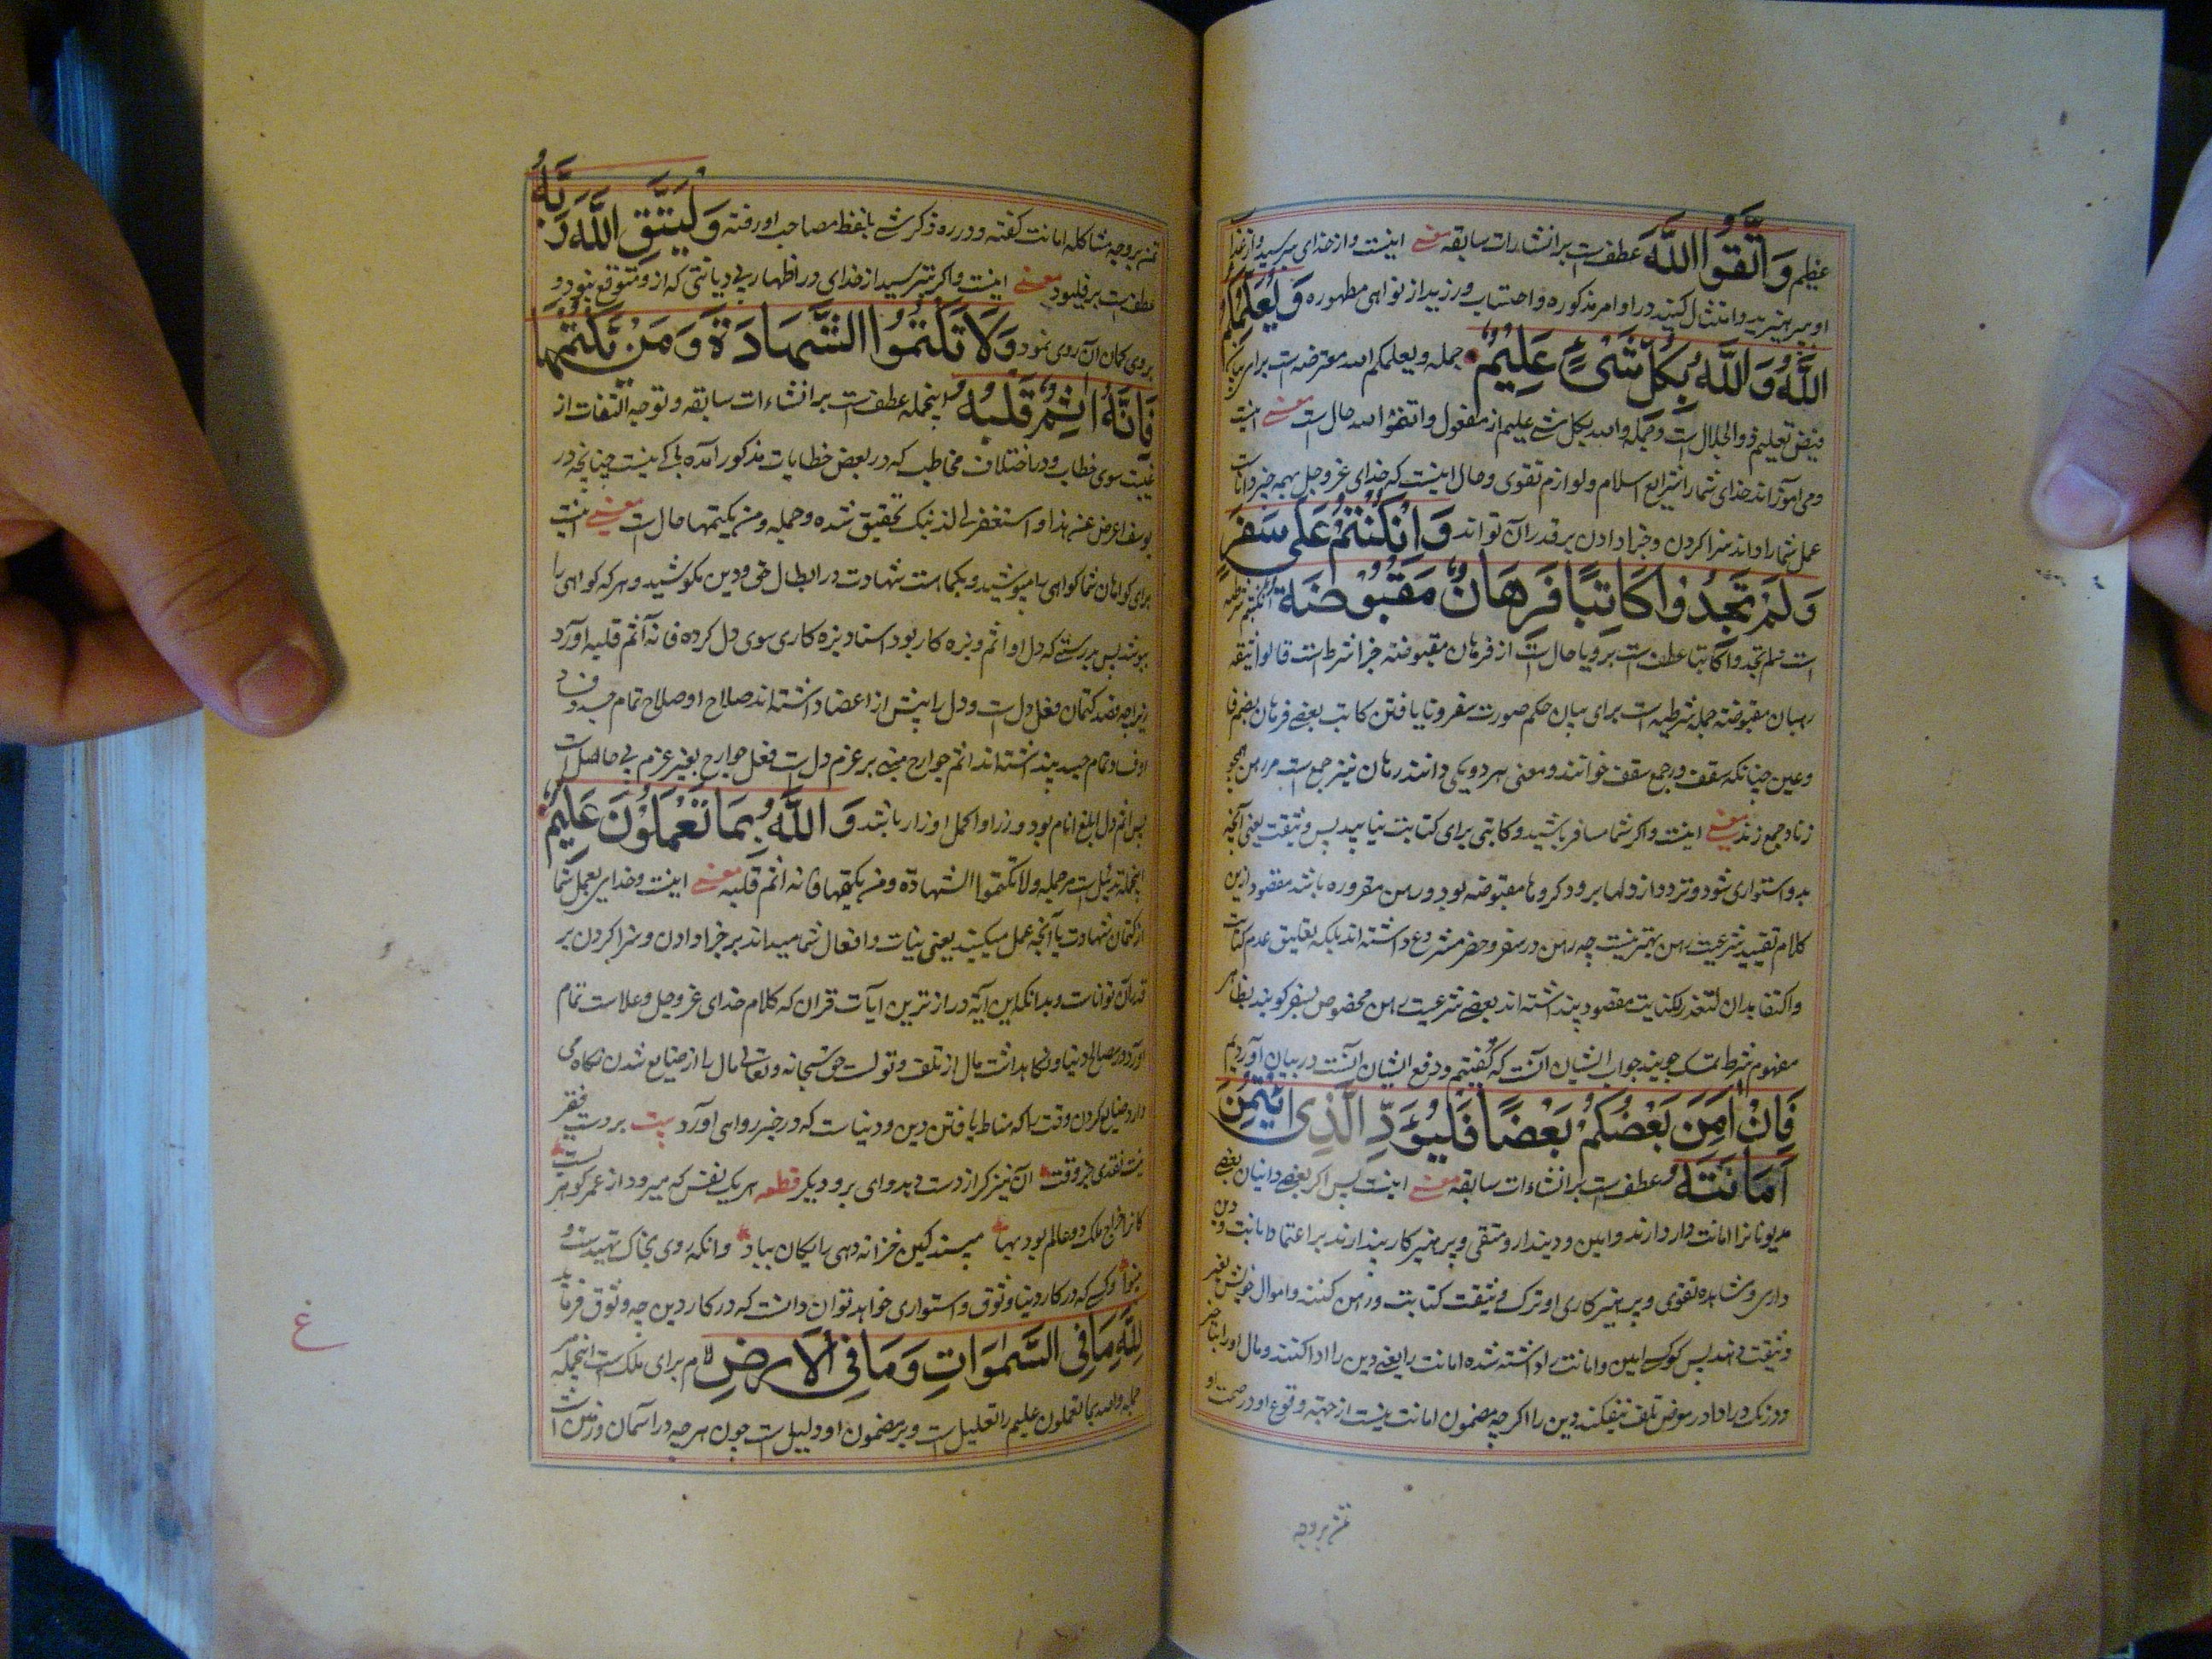 عظیم وَاتَّقُوا اللَّهَ عطف است بر انشاءات سابقه معنی اینست و از خدای بترسید و از
او بپرهیزید و امتثال کنید در اوامر مذکوره و اجتناب ورزید از نواهی مطهوره وَيُعَلِّمُكُمُ
اللَّهُ وَاللَّهُ بِكُلِّ شَيْءٍ عَلِيمٌ جمله و یعلمکم الله معترضه است برای بیان
فیض تعلیم ذو الجلال است و جمله والله بکل شی علیم از مفعول واتقوا الله حال است معنی اینست
و می آموزاند خدای شما را شرایع اسلام و لوازم تقوی و حال اینست که خدای عز و جل بهمه چیز داناست
عمل شما را داند سزا کردن و جزا دادن بر قدر آن تواند وَإِنْ كُنْتُمْ عَلَى سَفَرٍ
وَلَمْ تَجِدُوا كَاتِبًا فَرِهَانٌ مَقْبُوضَةٌ
است ولم تجدوا کاتبا عطف است برو یا حال است از فرهان مقبوضه جزا شرط است
مقبوضه جمله شرطیه است برای بیان حکم صورت سفر و نایافتن کاتب بعضی فرهان بضم فا
و عین چنانکه سقف در جمع سقف خوانند و معنی هر دو یکی دانند رهان نیز جمع است مر رهن
زناد جمع زند معنی اینست و اگر شما مسافر باشید و کاتبی برای کتابت نیابید پس وثیقت یعنی آنچه
بدو استواری شود و تردد از دلها برود گروها مقبوضه بود و رهن مقروره باشد مقصود ازین
کلام تقیید شرعیت رهن بهتر نیست چه رهن در سفر و حضر مشروع داشته اند بلکه تعلیق عدم کتابت
و اکتفا بدان لتعذر الکتابت مقصود پنداشته اند بعضی شرعیت رهن مخصوص بسفر گویند بظاهر
مفهوم شرط تمسک جویند جواب ایشان آنست که گفتیم و دفع ایشان آنست در بیان آوردیم
فَإِنْ أَمِنَ بَعْضُكُمْ بَعْضًا فَلْيُؤَدِّ الَّذِي اؤْتُمِنَ
أَمَانَتَهُ عطف است بر انشاءات سابقه معنی اینست پس اگر بعضی داینان بعضی
مدیونانرا امانت دار دارند و امین و دیندار و متقی و پرهیزکار پندارند بر اعتماد
داری و مشاهده تقوی و پرهیزکاری او ترک وثیقت کتابت و رهن کنند و اموال خویش بغیر
وثیقت دهند پس گو که امین و امانت را داشته شده امانت را یعنی دین را ادا کنند و مال
و درنگ در ادا در معرض تلف نیفکند دین را اگر چه مضمون امانت نیست از جهة وقوع او در
تمن بر وجه
تمن بر وجه مشاکله امانت گفته و در ره ذکر شی بلفظ مصاحب او رفته وَلْيَتَّقِ اللَّهَ رَبَّهُ
عطف است بر فلیؤد معنی اینست و اگر بترسید از خدای در اظهار بی دیانتی که ازو متوقع نبود و
بروی گمان آن روی نمود وَلَا تَكْتُمُوا الشَّهَادَةَ وَمَنْ يَكْتُمْهَا
فَإِنَّهُ آثِمٌ قَلْبُهُ اینجمله عطف است بر انشاءات سابقه و توجه التفات از
غیبت سوی خطاب و در اختلاف مخاطب که در بعض خطابات مذکور آمده باکی نیست چنانچه در
یوسف اعرض عن هذا و استغفری لذنبک تحقیق شده و جمله و من یکتمها حال است معنی اینست
برای گواهان شما گواهی را مپوشید و بکمانت شهادت در ابطال حق و دین مکوشید و هر که گواهی را
بپوشد پس بدرستی که دل او آثم و بزه کار بود اسناد بزه کاری سوی دل کرده فانه آثم قلبه آورد
زیرا چه قصد کتمان فعل دل است و دل را پیش از اعضا داشته اند صلاح او صلاح تمام جسد و فساد
او فساد تمام جسد پنداشته اند اثم جوارح مبنی بر عزم دل است فعل جوارح بغیر عزم بی حاصل است
پس اثم دل ابلغ آثام بود و وزر او اکمل اوزار باشد وَاللَّهُ بِمَا تَعْمَلُونَ عَلِيمٌ
اینجمله تذییل است مر جمله ولا تکتموا الشهادة و من یکتمها فانه آثم قلبه معنی اینست و خدای بعمل شما
از کتمان شهادت یا آنچه عمل میکنید یعنی نیات و افعال شما میداند بر جزا دادن و سزا کردن بر
قدر آن تواناست و بدانکه این آیة درازترین آیات قران که کلام خدای عز و جل و علاست تمام
آورد در مصالح دنیا و نگاهداشت مال از تلف و تولست حق سبحانه و تعالی مال را از ضایع شدن نگاه می
دارد ضایع کردن وقت را که مناط یافتن دین و دنیاست که در خبر روا می آورد بیت بر دست فقیر
نیست نقدی جز وقت آن نیز گر از دست دهد وای برو دیگر قطعه هر یک نفس که میرود از عمر گوهر یست
کانرا خراج ملک دو عالم بود بها مپسند کین خزانه دهی رایگان بباد وانگه روی بخاک تهیدست و
بینوا و کسی که در کار دنیا وثوق و استواری خواهد توان دانست که در کار دین چه وثوق فرماید
لِلَّهِ مَا فِي السَّمَوَاتِ وَمَا فِي الْأَرْضِ لام برای ملک است اینجمله مر
جمله والله بما تعملون علیم را تعلیل است و بر مضمون او دلیل است چون هر چه در آسمان و زمین است
ع